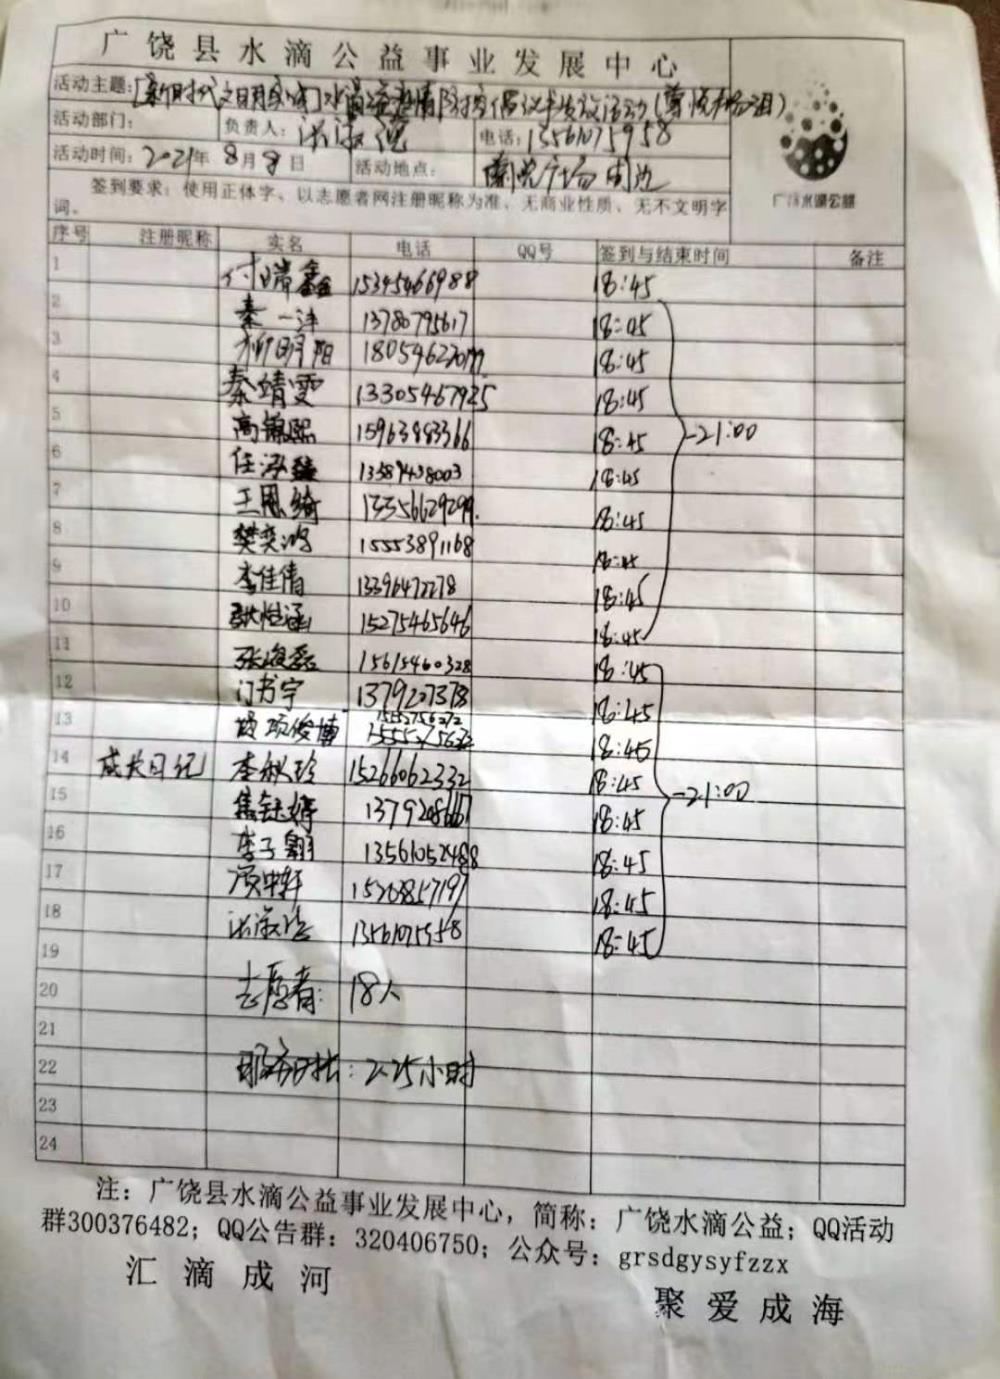 广饶县水滴公益事业发展中心
活动主题：[新时代文明实践]水滴公益疫情防控倡议书发放活动(
活动部门： 负责人： 电话：13561075958
活动时间：2021年8月8日 活动地点： 广场周边
广饶水滴公益
签到要求：使用正体字、以志愿者网注册昵称为准、无商业性质、无不文明字
词。
序号 注册昵称 实名 电话 QQ号 签到与结束时间 备注
1 付瑞鑫 15345466988 18:45
2 秦一沣 13780795617 18:45
3 柳明阳 18:45
4 秦靖雯 13305467925 18:45
5 高锦熙 15963883366 18:45
-21:00
6 任泓臻 13589438003 18:45
7 王恩绮 18:45
8 樊奕鸿 15553891168 18:45
9 李佳倩 13396472278 18:45
10 15275465646 18:45
11 15615460328 18:45
12 门书宇 1379227378 18:45
13 项俊博 18:45
14 成长日记 李秋玲 15266062332 18:45
-21:00
15 焦钰婷 18:45
16 李子翱 13561052488 18:45
17 18:45
18 13561075958 18:45
19
20 志愿者：18人
21
22 服务时长：2.25小时
23
24
注：广饶县水滴公益事业发展中心，简称：广饶水滴公益；QQ活动
群300376482；QQ公告群：320406750；公众号：grsdgysyfzzx
汇滴成河
聚爱成海